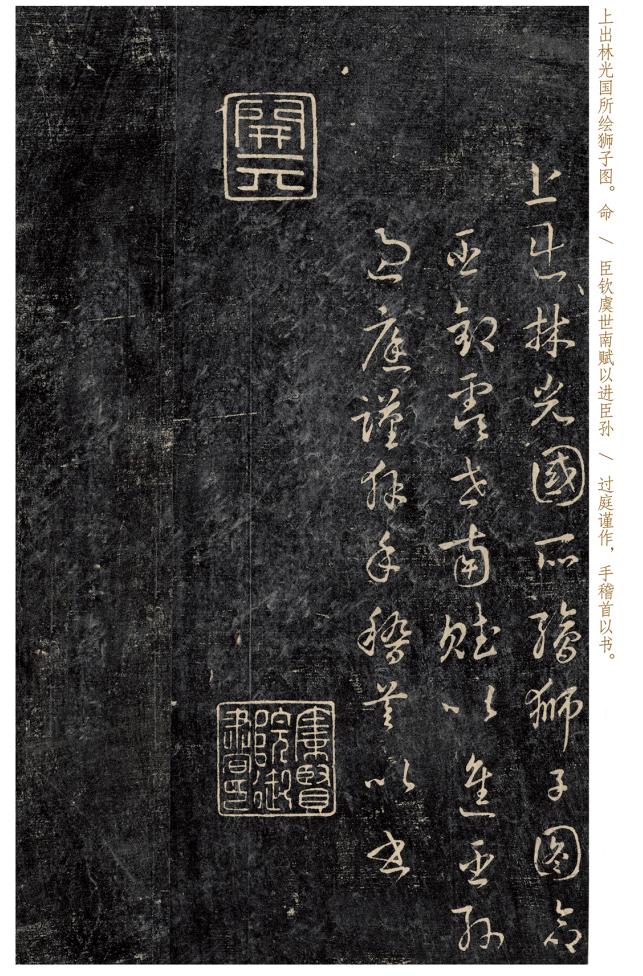 上出林光国所绘狮子图。命 / 臣钦虞世南赋以进臣孙 / 过庭谨作，手稽首以书。
上出林光國所繪獅子圖命
臣欽虞世南賦以進臣孫
過庭謹作手稽首以書
開元
集賢院御書印